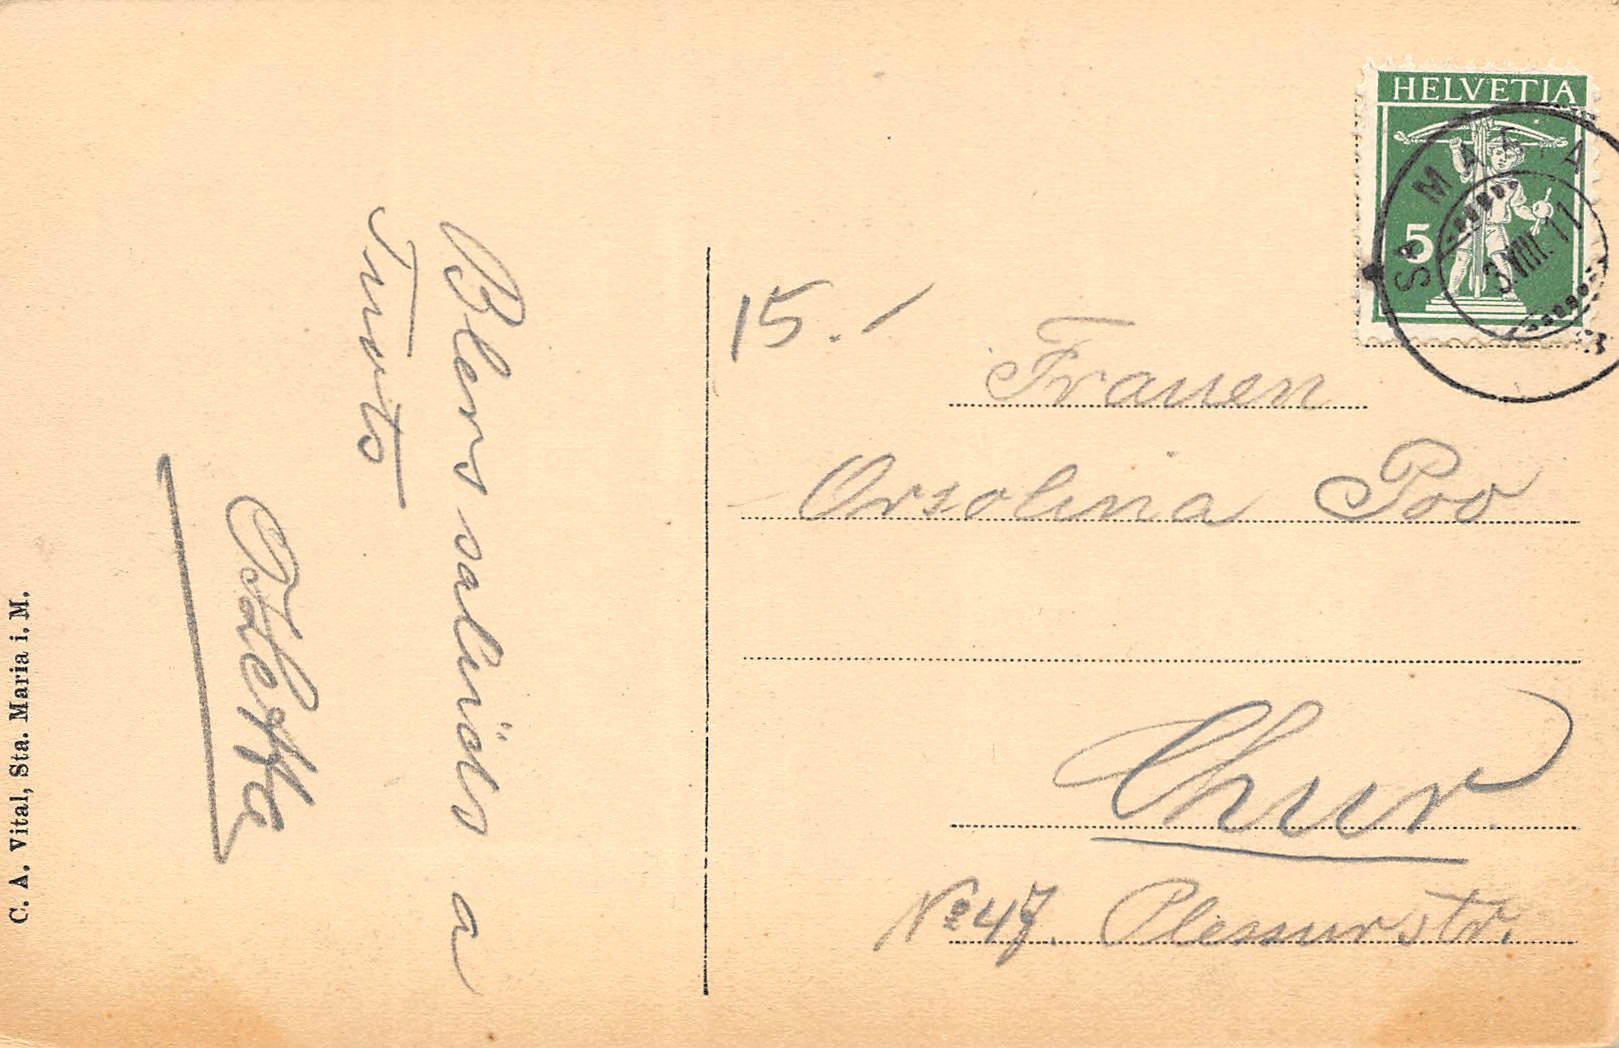 HELVETIA
5
Sta MARIA
3.VIII.11
15.-
Frauen
Orsolina Poo
Chur.
No 47. Plessurstr.
Blers salüds a
Tuots
C. A. Vital, Sta. Maria i. M.